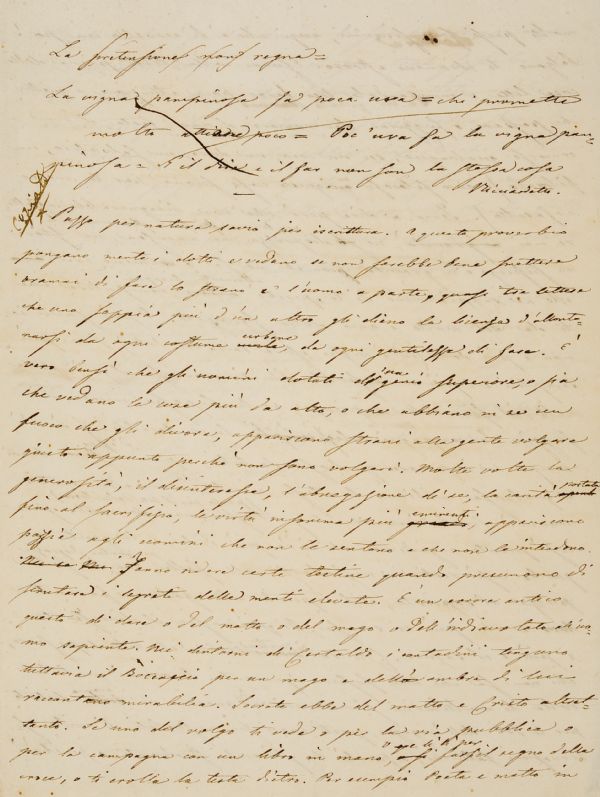 La pretensione non regna =
La vigna pampinosa fa poca uva = chi promette
molto attiene poco = Poc'uva fa la vigna pam-
pinosa = E il dire e il far non son la stessa cosa
Ricciardetto.
Pazzo per natura savio per iscrittura. A questo proverbio
pongano mente i dotti e vedano se non sarebbe bene smettere
oramai di fare lo strano e l'uomo a parte, quasi tra lettere
che uno sappia più d'un altro gli diano la licenza d'allonta-
narsi da ogni costume urbano da ogni gentilezza di fare. È
vero bensì che gli uomini dotati d'ingegno superiore o sia
che vedano le cose più da alto, o che abbiano in se un
fuoco che gli divora, appariscono strani alla gente volgare
giusto appunto perchè non sono volgari. Molte volte la
generosità, il disinteresse, l'abnegazione di se, la carità portata
fino al sacrifizio, le virtù insomma più eminenti, appariscono
pazzie agli uomini che non le sentono e che non le intendono.
Fanno ridere certe testine quando presumono di
scrutare i segreti delle menti elevate. È un errore antico
questo di dare o del matto o del mago o dell'indiavolato all'uo-
mo sapiente. Nei dintorni di Certaldo i contadini tengono
tuttavia il Boccaccio per un mago e delle ombre di lui
raccontano mirabilia. Socrate ebbe del matto e Cristo altret-
tanto. Se uno del volgo ti vede o per la via pubblica o
per la campagna con un libro in mano, o che ti fa segno della
croce, o ti crolla la testa dietro. Per esempio Poeta e matto in